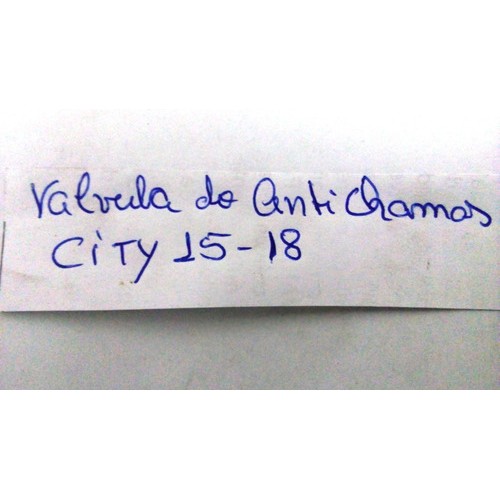 Valvula do anti chamas
CiTy 15-18